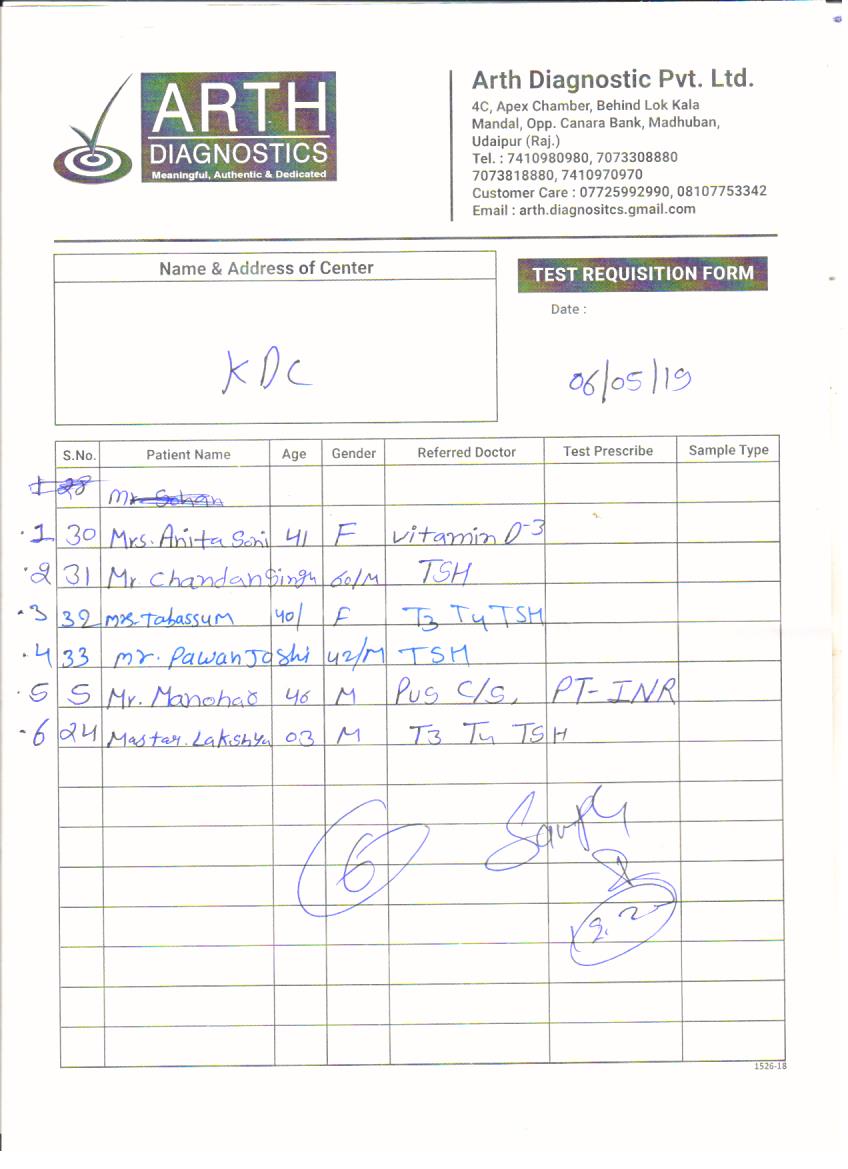 ARTH
DIAGNOSTICS
Meaningful, Authentic & Dedicated
Arth Diagnostic Pvt. Ltd.
4C, Apex Chamber, Behind Lok Kala
Mandal, Opp. Canara Bank, Madhuban,
Udaipur (Raj.)
Tel. : 7410980980, 7073308880
7073818880, 7410970970
Customer Care : 07725992990, 08107753342
Email : arth.diagnositcs.gmail.com
Name & Address of Center
KDC
TEST REQUISITION FORM
Date :
06/05/19
S.No. Patient Name Age Gender Referred Doctor Test Prescribe Sample Type
1 28 Mr. Sohan
1 30 Mrs. Anita Soni 41 F Vitamin D-3
2 31 Mr Chandan Singh 60/M TSH
3 32 Mrs. Tabassum 40/ F T3 T4 TSH
4 33 Mr. Pawan Joshi 42/M TSH
5 5 Mr. Manohar 46 M Pus C/S, PT-INR
6 24 Mastar. Lakshya 03 M T3 T4 TSH
6
1526-18